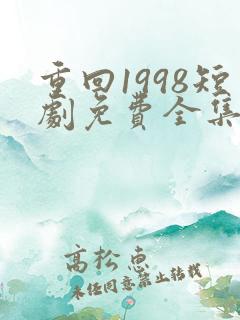 重回1998短
劇免費全集
高松惠
未经同意禁止转载